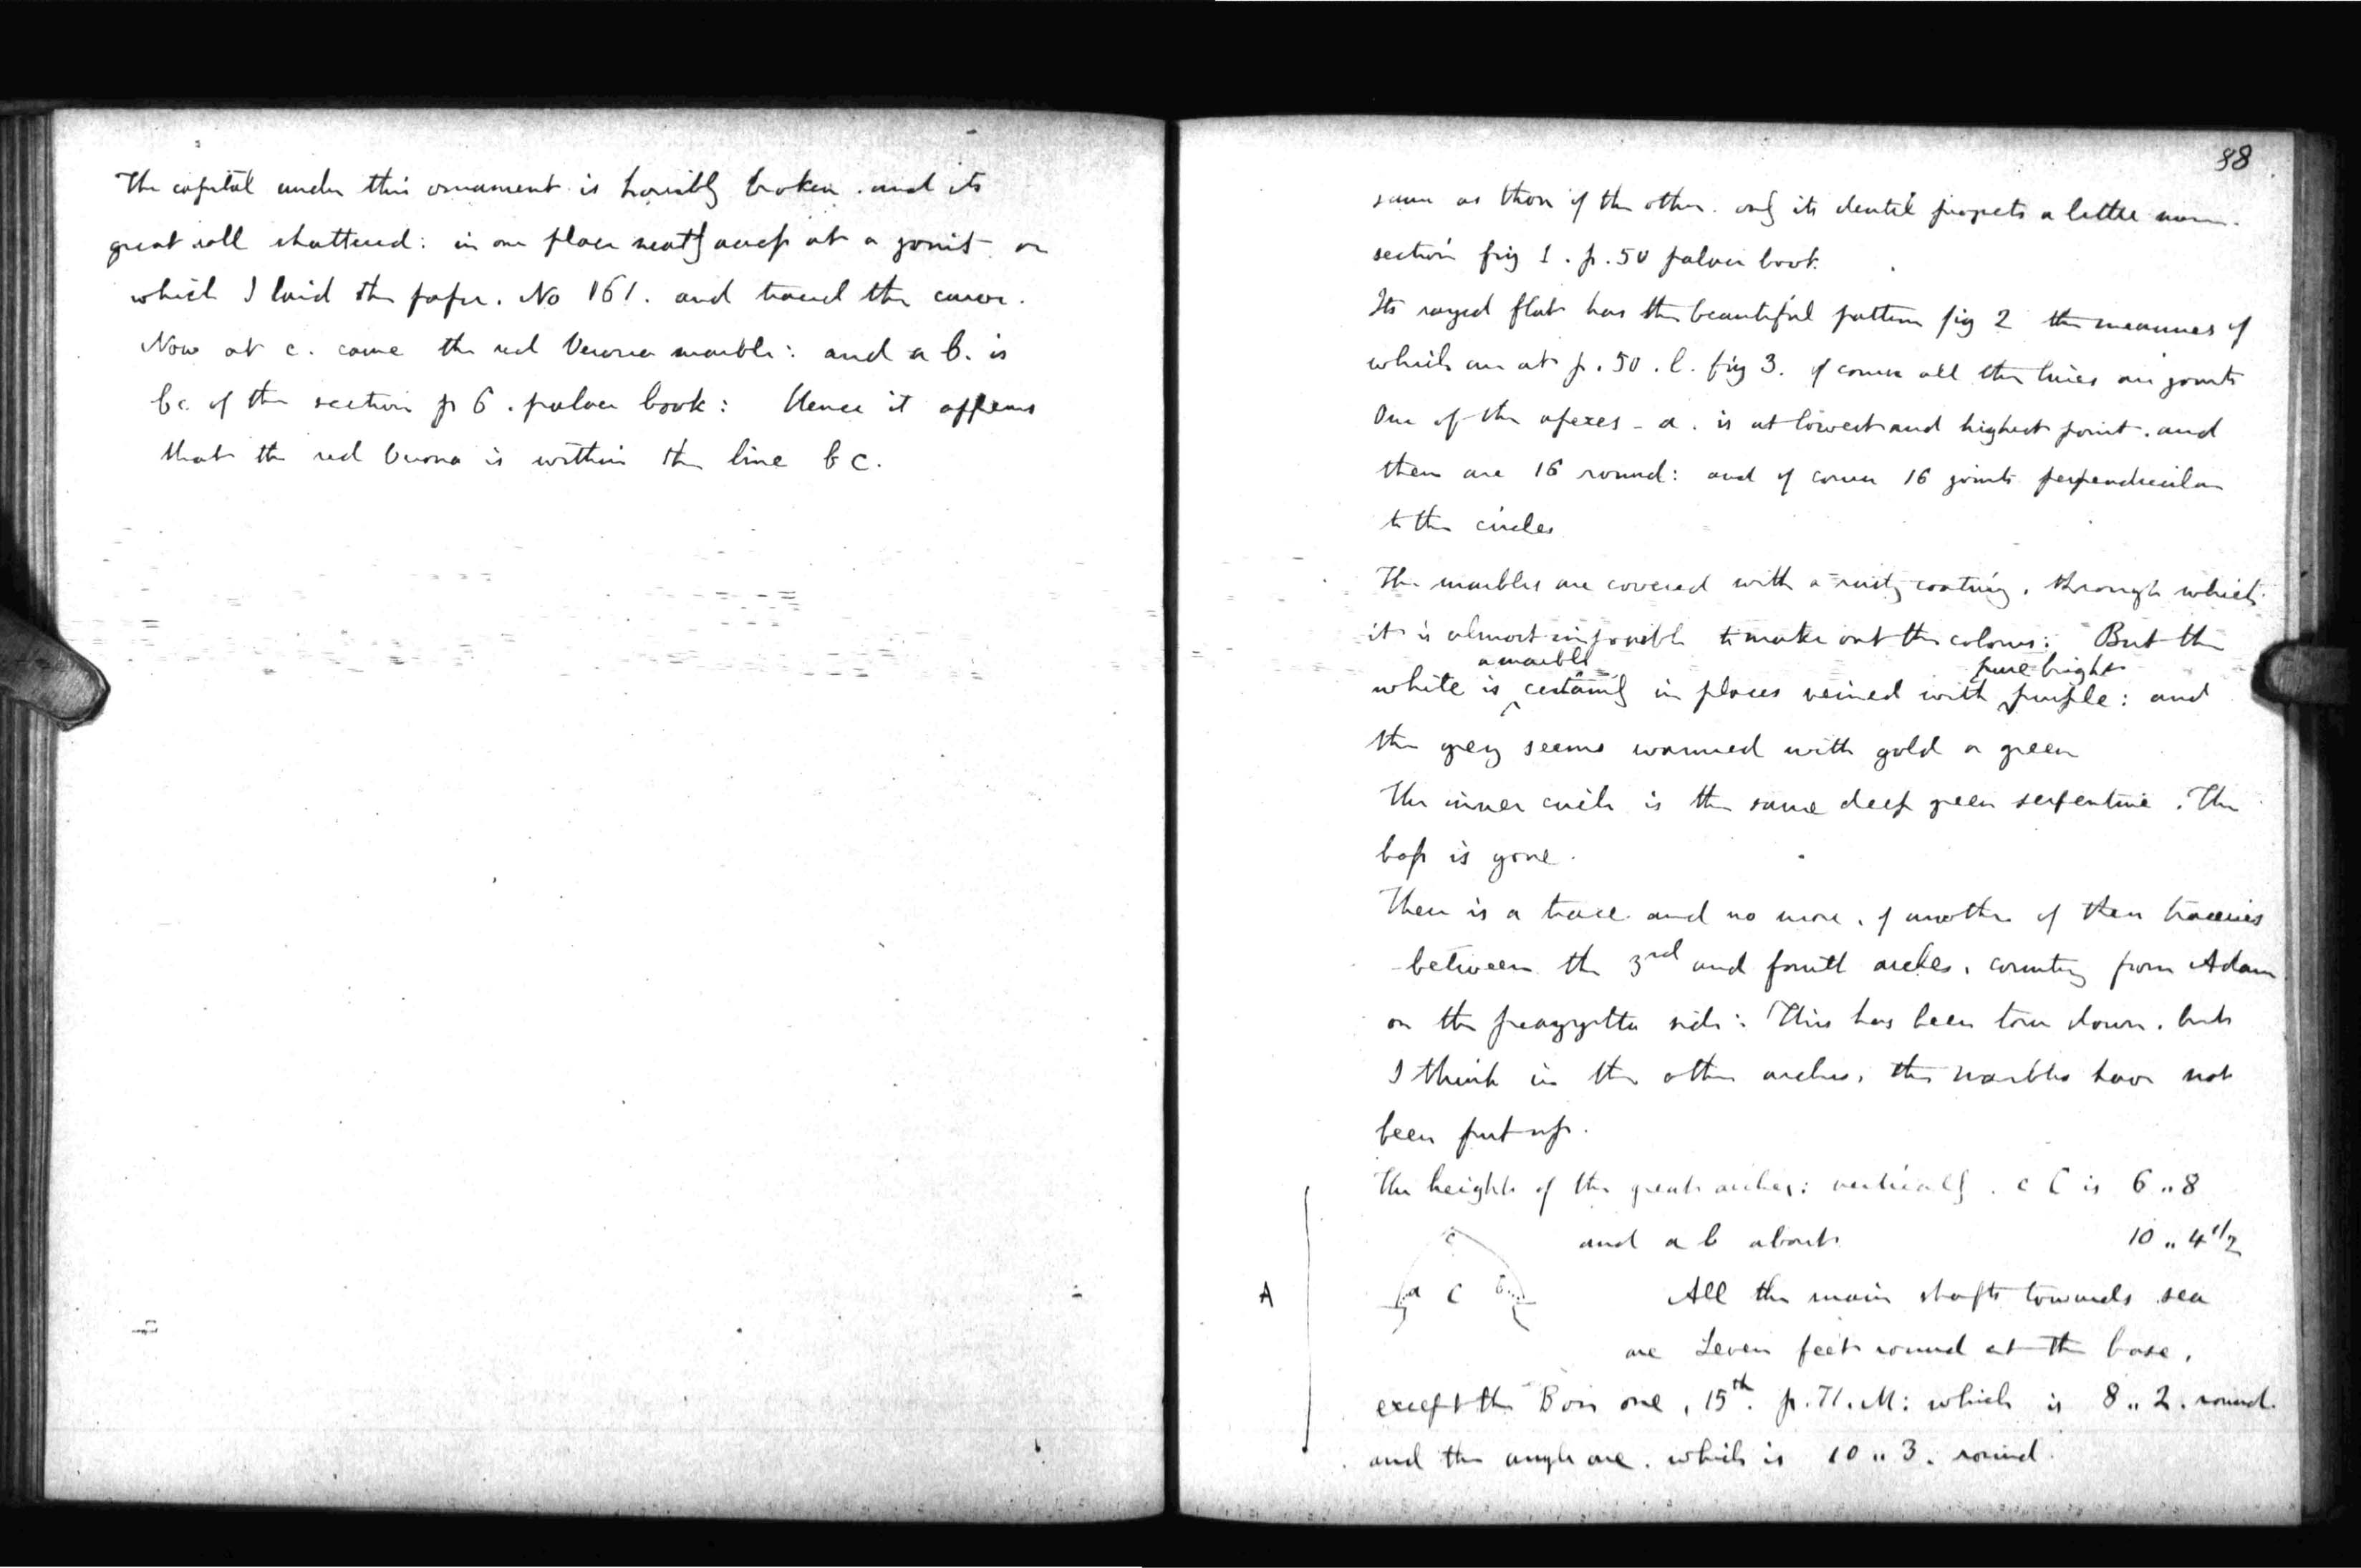 The capital under this ornament is horribly broken. and its
great roll shattered: in one place neatly across at a joint on
which I laid the paper. No 161. and traced the curve.
Now at c. came the red Verona marble: and a b. is
bc. of the section p 6. palace book: Hence it appears
that the red Verona is within the line b c.
88
same as those of the other. only its dentil projects a little more.
section fig 1. p. 50 palace book.
Its rayed flat has the beautiful pattern fig 2 the measures of
which are at p. 50. l. fig 3. of course all the lines are joints
One of the apexes - a. is at lowest and highest point. and
there are 16 round: and of course 16 joints perpendicular
to the circles
The marbles are covered with a rusty coating, through which
it is almost impossible to make out the colours: But the
a marble pure bright
white is certainly in places veined with purple: and
the grey seems warmed with gold or green
The inner circle is the same deep green serpentine. The
boss is gone.
There is a trace and no more, of another of these traceries
between the 3rd and fourth arches, counting from Adam
on the piazzetta side: This has been torn down. but
I think in the other arches, the marbles have not
been put up.
The height of the great arches: vertically. c C is 6 .. 8
and a b about 10 .. 4 1/2
c
A a C b
All the main shafts towards sea
are seven feet round at the base,
except the Bon one, 15th. p. 71. M: which is 8 .. 2. round.
and the angle one. which is 10 .. 3. round.